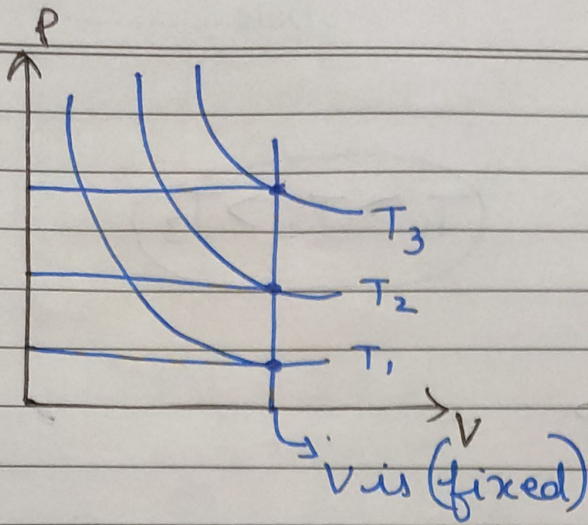 P
T3
T2
T1
V
V is (fixed)